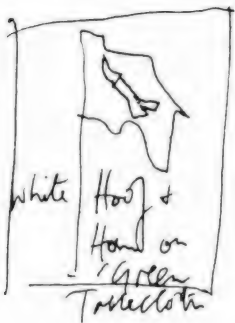 White Hoof &
Hand on
'Green
Tablecloth